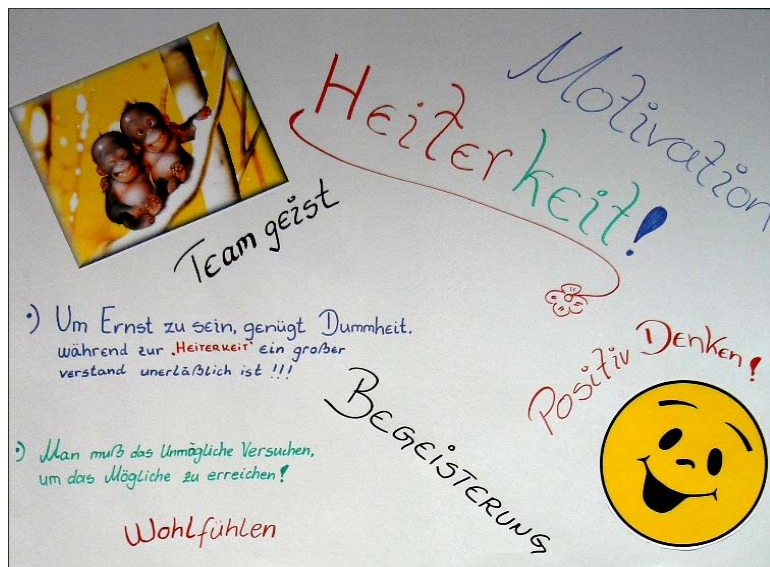 Motivation
Heiterkeit!
Teamgeist
·) Um Ernst zu sein, genügt Dummheit,
während zur "HEITERKEIT" ein großer
verstand unerläßlich ist !!!
Positiv Denken!
BEGEISTERUNG
·) Man muß das Unmögliche Versuchen,
um das Mögliche zu erreichen!
Wohlfühlen